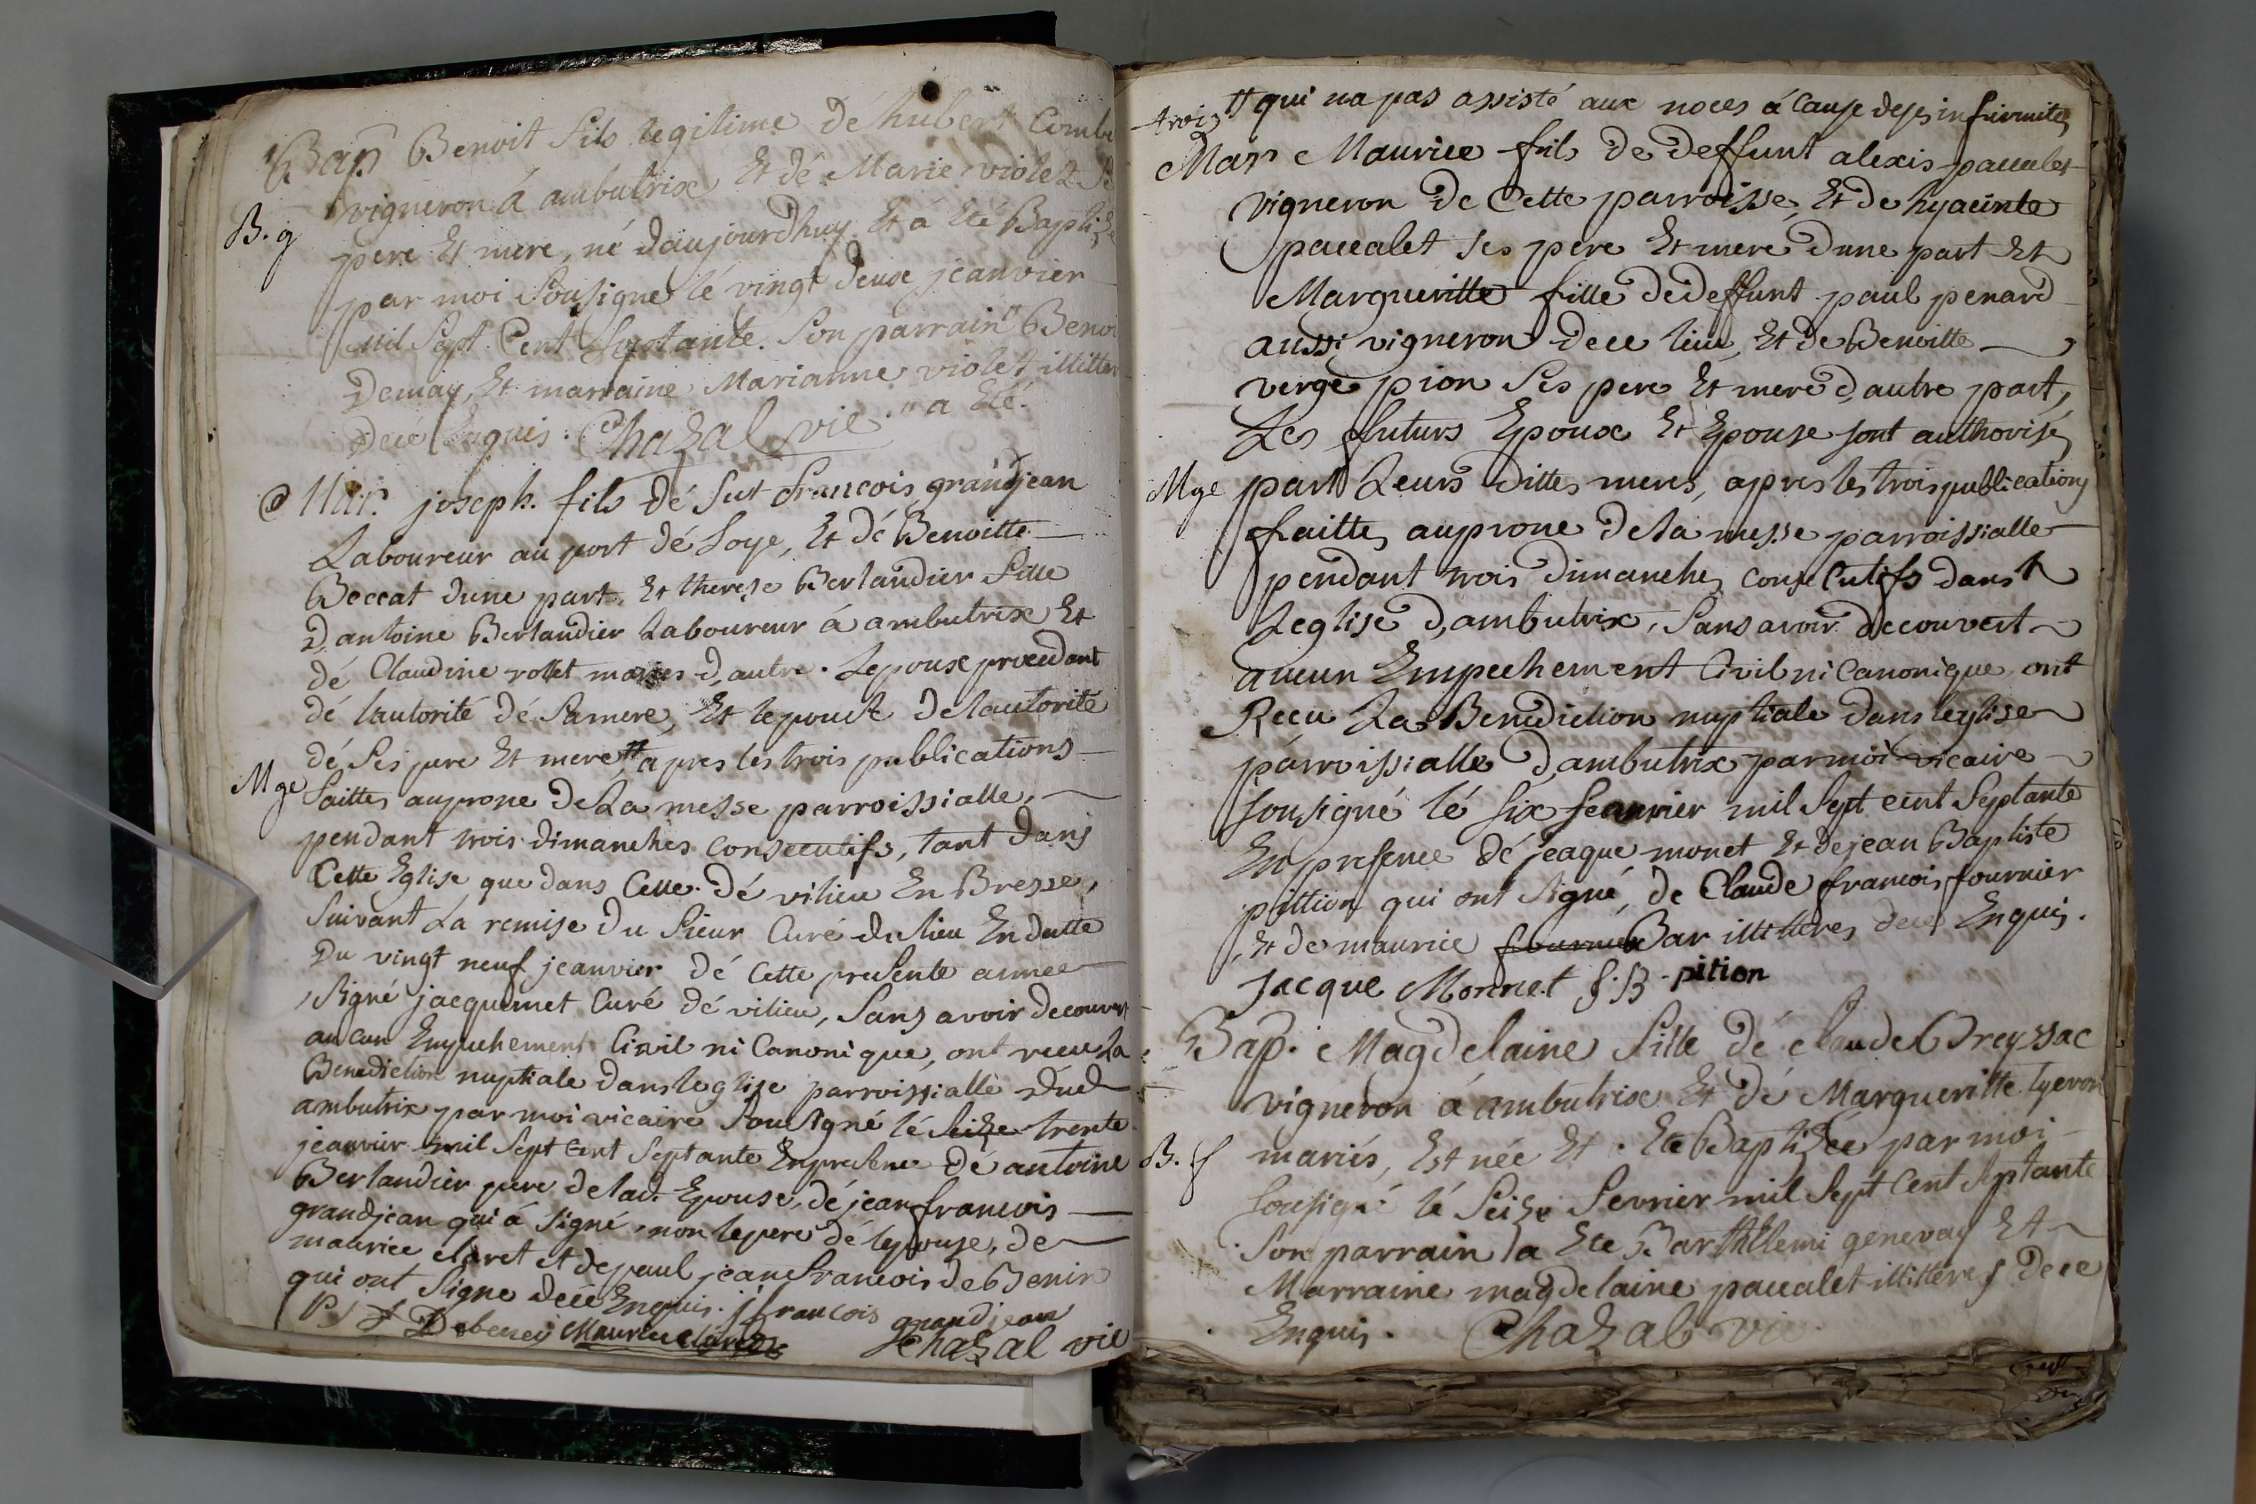 Bapt Benoit fils legitime dé hubert Combe
vigneron á ambutrix Et dé Marie violet Se
B. g
pere Et mere, né daujourdhuy Et á Eté Baptizé
par moi Sousigné lé vingt deux jeanvier
mil Sept Cent Septante. Son parrain " Benoi
Demay, Et marraine Marianne violet illitter
dece Enquis. Chazal vic " a Eté.
Mar. joseph. fils dé fut francois grandjean
Laboureur au port dé Loye, Et dé Benoitte
Beccat dune part. Et therese Berlandier fille
D,antoine Berlandier Laboureur á ambutrix Et
dé Claudine rollet maries d,autre. Lepoux procedant
dé lautorité dé Samere, Et lepouse delautorité
dé Ses pere Et mere # apres les trois publications
Mge
faittes auprone de La messe parroissialle,
pendant trois dimanches consecutifs, tant dans
Cette Eglise que dans Celle dé vilieu En Bresse,
Suivant La remise du Sieur Curé du lieu En datte
Du vingt neuf jeanvier dé cette presente année
Signé jacquemet Curé dé vilieu, Sans avoir decouvert
aucun Empechement Civil ni Canonique, ont recu La
Benediction nuptiale dans leglise parroissialle dud
ambutrix par moi vicaire Sousigné lé Seize trente
jeanvier mil Sept Cent Septante Enpresence de antoine
Berlandier pere de lad. Epouse, dé jean francois
grandjean qui á Signé, non lepere dé lepouse, de
maurice claret et de paul jean francois de Benin
qui ont Signe dece Enquis. j francois grandjean
P J f Debeney Maurice claret Chazal vic
trois
# qui na pas assisté aux noces á Cause deses infirmites
Mar Maurice fils de deffunt alexis paccalet
vigneron de Cette parroisse, Et de hyacinte
paccalet ses pere Et mere dune part Et
Margueritte fille dedeffunt paul penard
aussi vigneron dece lieu, Et de Benoitte
verge pion Ses pere Et mere d,autre part,
Les futurs Epoux Et Epouse sont authorisés
Mge
part Leurs dittes meres, apres les trois publications
faittes auprone dela messe parroissialle
pendant trois dimanches consecutifs dans
Leglise d,ambutrix, Sans avoir decouvert
aucun Empechement Civil ni Canonique, ont
Recu La Benediction nuptiale dans leglise
parroissialle d,ambutrix par moi vicaire
sousigné lé six feanvrier mil Sept cent Septante
En presence dé jeaque monet Et dejean Baptiste
pittion qui ont Signé, de Claude francois fournier
, Et de maurice fournier Bar illitteres dece Enquis.
jacque Monnet J. B. pition
Bap. Magdelaine fille dé claude Breyssac
vigneron á ambutrix Et dé Margueritte
B. f
mariés, Est née Et Eté Baptizée par moi
Sousigné lé Seize fevrier mil Sept Cent Septante
Son parrain a Ete Barthelemi genevay Et
Marraine magdelaine paccalet illitteres dece
Enquis. Chazal vic